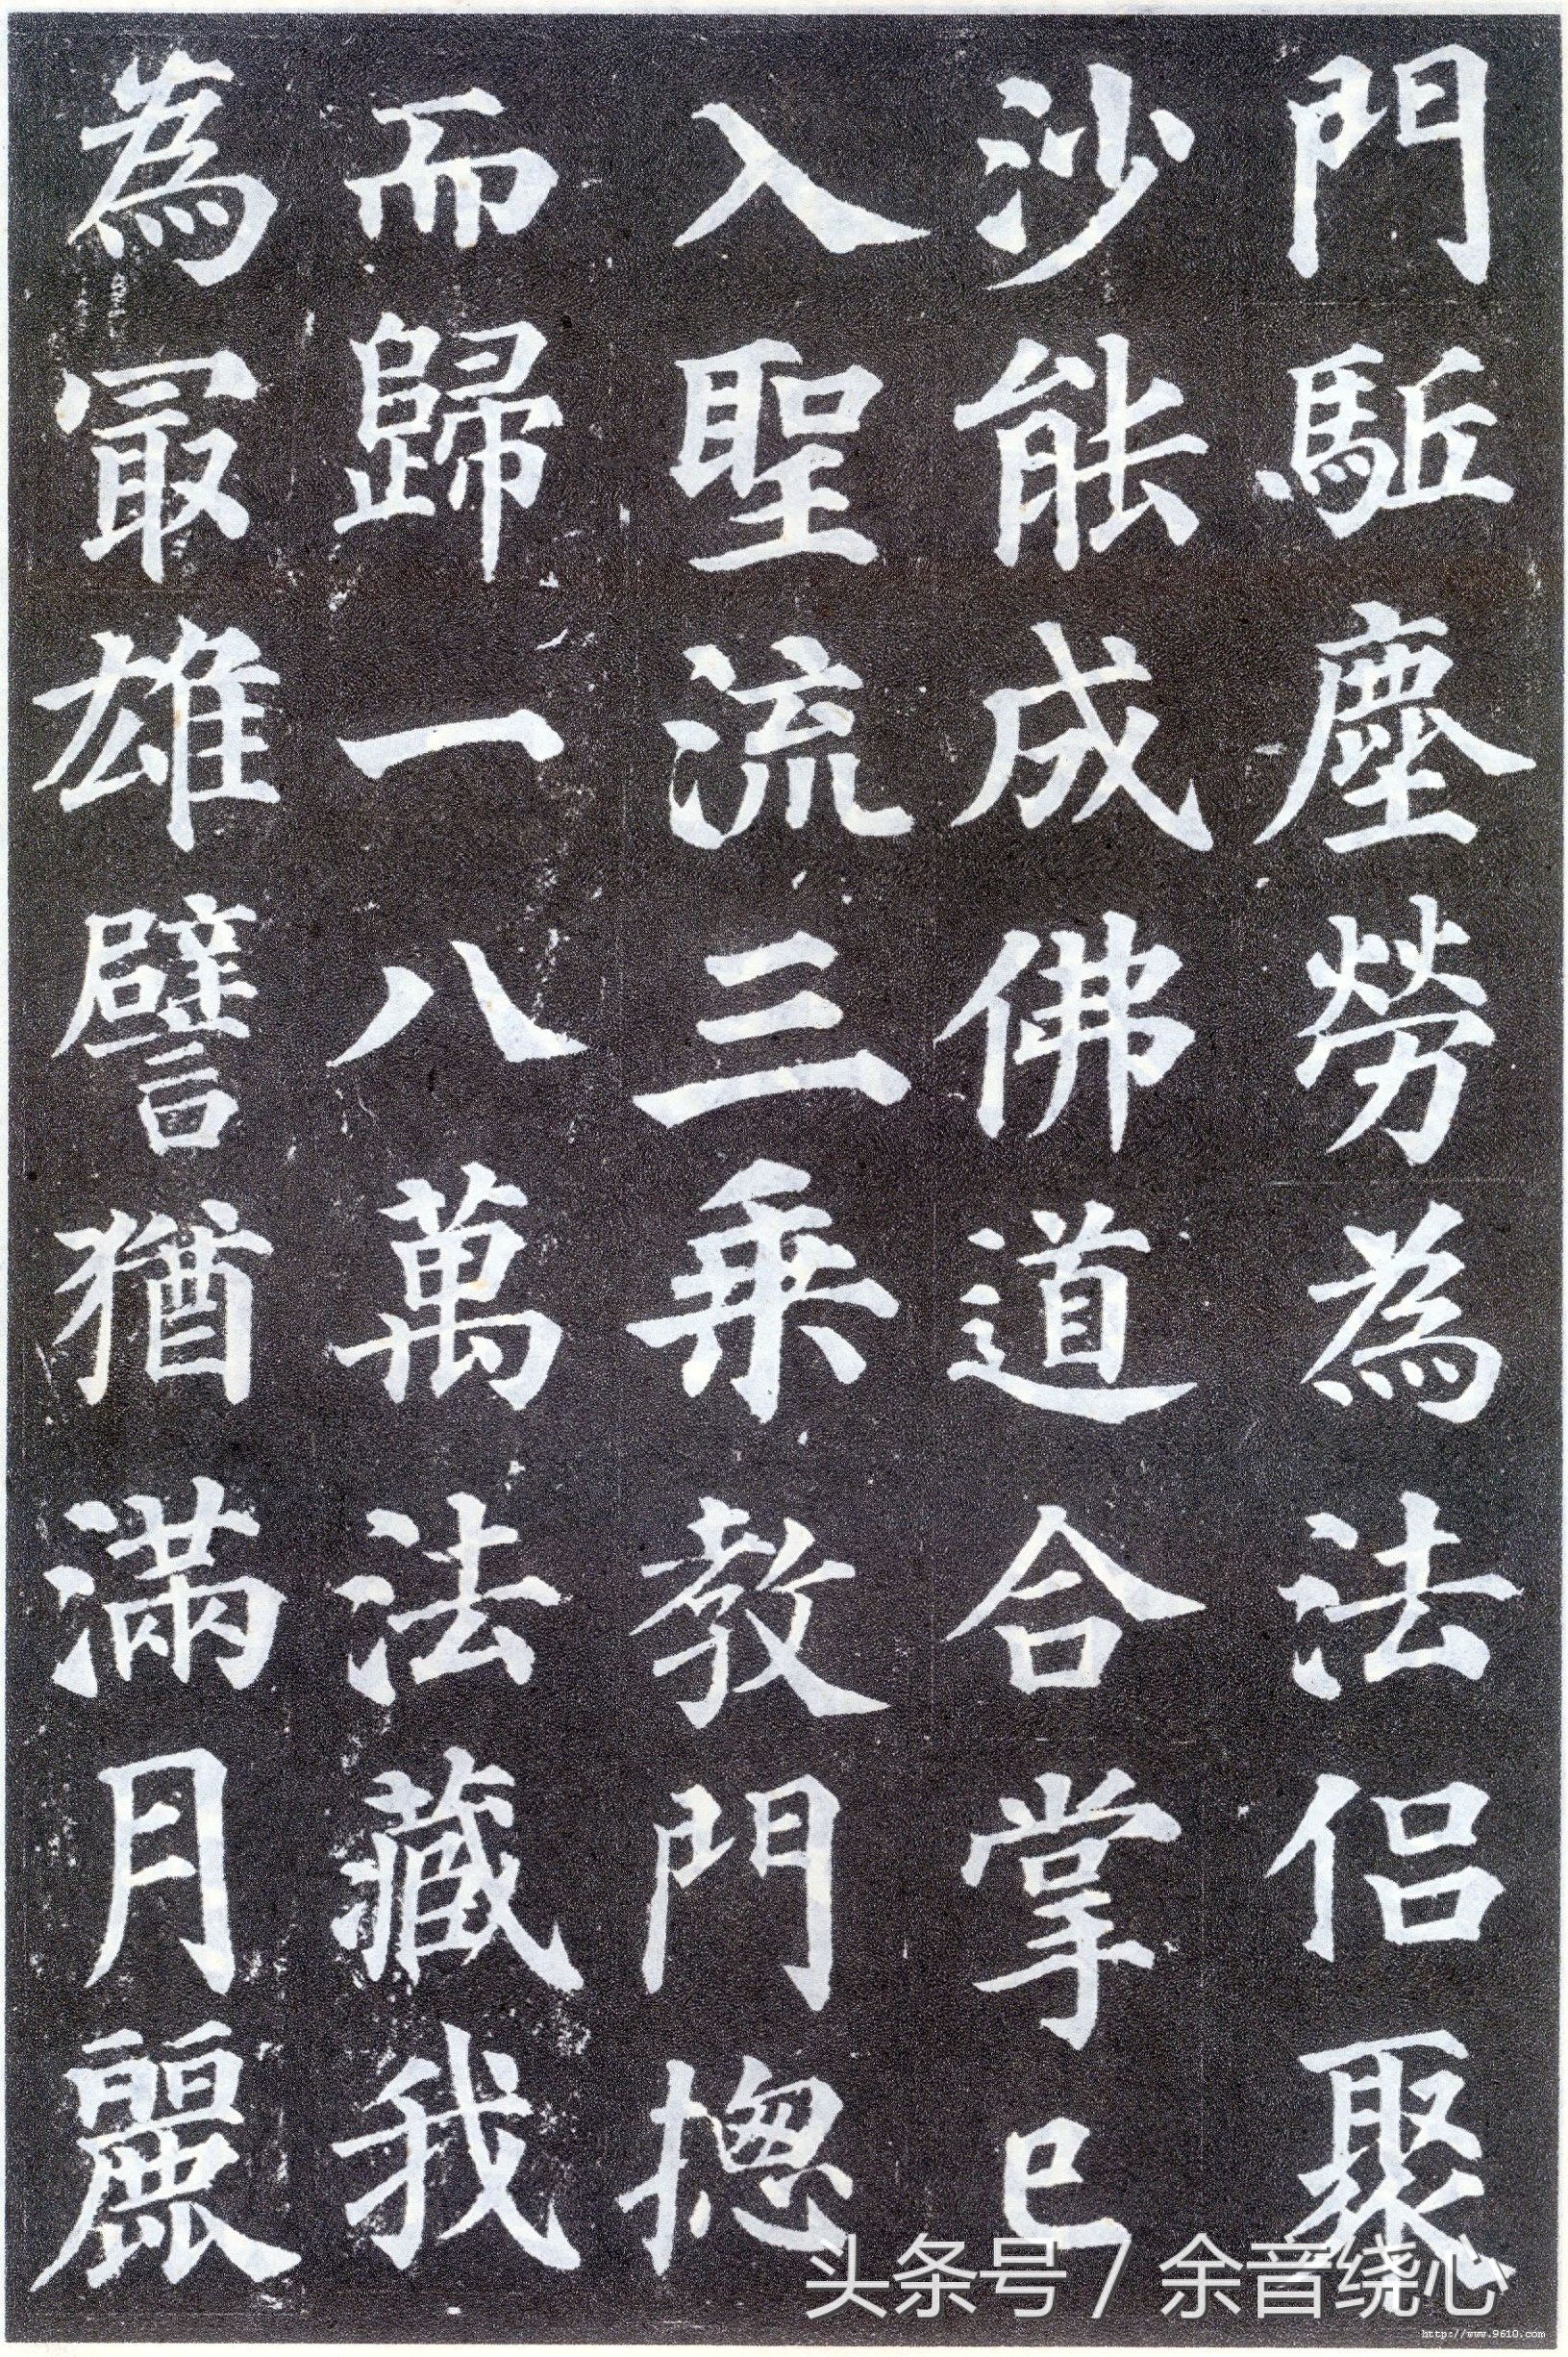 門駈塵勞為法侣聚
沙能成佛道合掌已
入聖流三乗教門揔
而歸一八萬法藏我
為冣雄譬猶滿月麗
头条号 / 余音绕心
http://www.9610.com